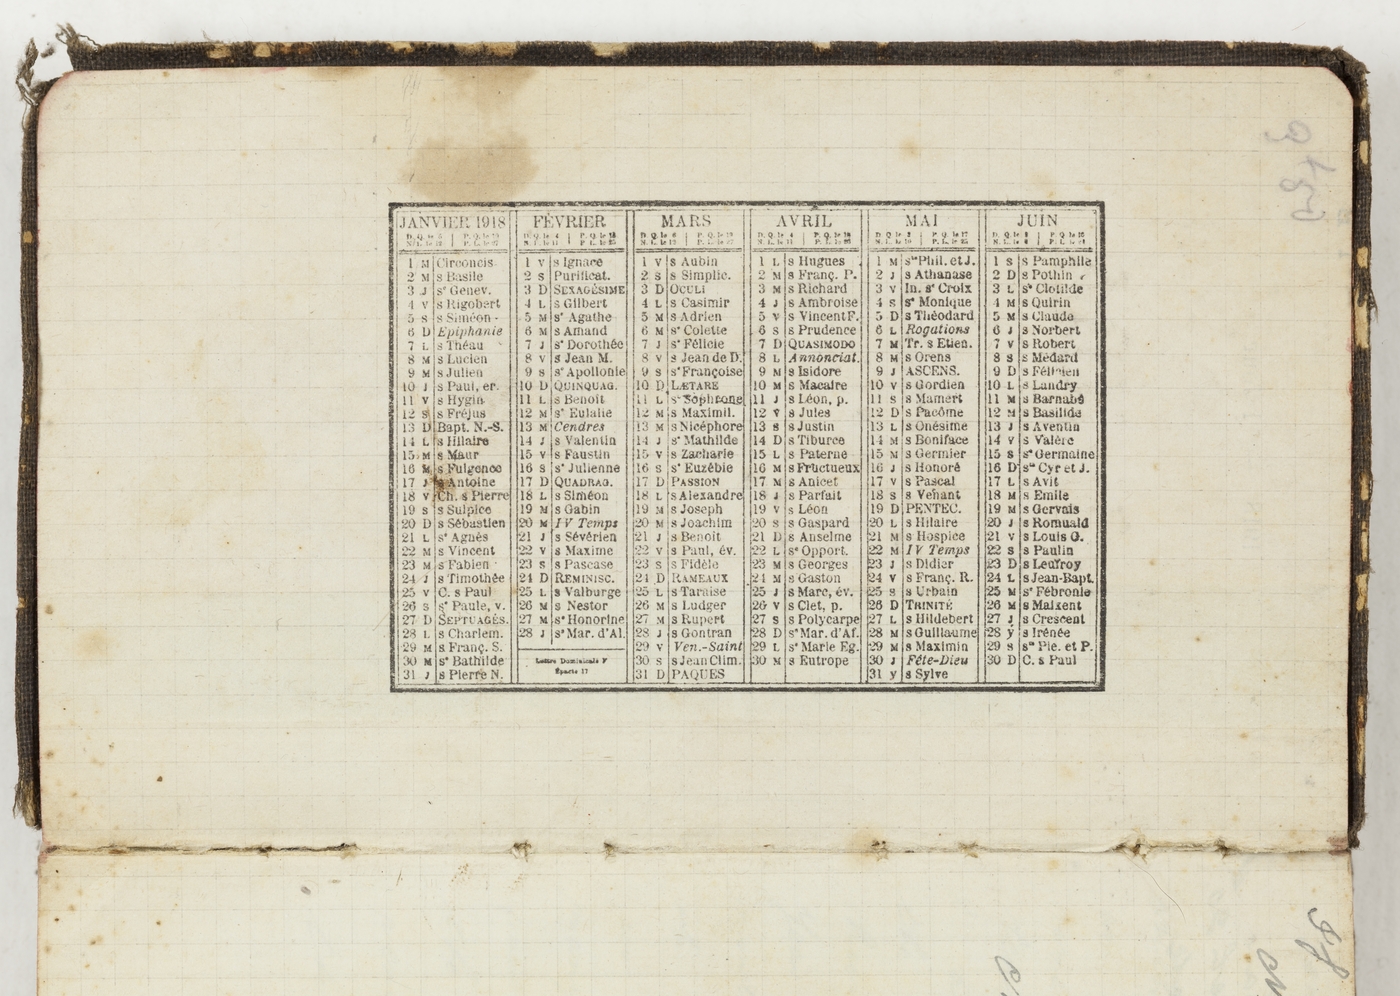 JANVIER 1918
1 M Circoncis.
2 M s Basile
3 J sᵉ Genev.
4 V s Rigobert
5 S s Siméon
6 D Epiphanie
7 L s Théau
8 M s Lucien
9 M s Julien
10 J s Paul, er.
11 V s Hygin
12 S s Fréjus
13 D Bapt. N.-S.
14 L s Hilaire
15 M s Maur
16 M s Fulgence
17 J s Antoine
18 V Ch. s Pierre
19 S s Sulpice
20 D s Sébastien
21 L sᵉ Agnès
22 M s Vincent
23 M s Fabien
24 J s Timothée
25 V C. s Paul
26 S sᵉ Paule, v.
27 D SEPTUAGÉS.
28 L s Charlem.
29 M s Franç. S.
30 M sᵉ Bathilde
31 J s Pierre N.
FÉVRIER
1 V s Ignace
2 S Purificat.
3 D SEXAGÉSIME
4 L s Gilbert
5 M sᵉ Agathe
6 M s Amand
7 J sᵉ Dorothée
8 V s Jean M.
9 S sᵉ Apollonie
10 D QUINQUAG.
11 L s Benoit
12 M sᵉ Eulalie
13 M Cendres
14 J s Valentin
15 V s Faustin
16 S sᵉ Julienne
17 D QUADRAG.
18 L s Siméon
19 M s Gabin
20 M IV Temps
21 J s Sévérien
22 V s Maxime
23 S s Pascase
24 D REMINISC.
25 L s Valburge
26 M s Nestor
27 M sᵉ Honorine
28 J sᵉ Mar. d'Al.
Lettre Dominicale F
Épacte 17
MARS
1 V s Aubin
2 S s Simplic.
3 D OCULI
4 L s Casimir
5 M s Adrien
6 M sᵉ Colette
7 J sᵉ Félicie
8 V s Jean de D.
9 S sᵉ Françoise
10 D LÆTARE
11 L s Sophrone
12 M s Maximil.
13 M s Nicéphore
14 J sᵉ Mathilde
15 V s Zacharie
16 S sᵉ Euzébie
17 D PASSION
18 L s Alexandre
19 M s Joseph
20 M s Joachim
21 J s Benoit
22 V s Paul, év.
23 S s Fidèle
24 D RAMEAUX
25 L s Taraise
26 M s Ludger
27 M s Rupert
28 J s Gontran
29 V Ven.-Saint
30 S s Jean Clim.
31 D PAQUES
AVRIL
1 L s Hugues
2 M s Franç. P.
3 M s Richard
4 J s Ambroise
5 V s Vincent F.
6 S s Prudence
7 D QUASIMODO
8 L Annonciat.
9 M s Isidore
10 M s Macaire
11 J s Léon, p.
12 V s Jules
13 S s Justin
14 D s Tiburce
15 L s Paterne
16 M s Fructueux
17 M s Anicet
18 J s Parfait
19 V s Léon
20 S s Gaspard
21 D s Anselme
22 L sᵉ Opport.
23 M s Georges
24 M s Gaston
25 J s Marc, év.
26 V s Clet, p.
27 S s Polycarpe
28 D sᵉ Mar. d'Af.
29 L sᵉ Marie Eg.
30 M s Eutrope
MAI
1 M sᵗˢ Phil. et J.
2 J s Athanase
3 V In. sᵉ Croix
4 S sᵉ Monique
5 D s Théodard
6 L Rogations
7 M Tr. s Etien.
8 M s Orens
9 J ASCENS.
10 V s Gordien
11 S s Mamert
12 D s Pacôme
13 L s Onésime
14 M s Boniface
15 M s Germier
16 J s Honoré
17 V s Pascal
18 S s Venant
19 D PENTEC.
20 L s Hilaire
21 M s Hospice
22 M IV Temps
23 J s Didier
24 V s Franç. R.
25 S s Urbain
26 D TRINITÉ
27 L s Hildebert
28 M s Guillaume
29 M s Maximin
30 J Fête-Dieu
31 V s Sylve
JUIN
1 S s Pamphile
2 D s Pothin
3 L sᵉ Clotilde
4 M s Quirin
5 M s Claude
6 J s Norbert
7 V s Robert
8 S s Médard
9 D s Félicien
10 L s Landry
11 M s Barnabé
12 M s Basilide
13 J s Aventin
14 V s Valère
15 S sᵉ Germaine
16 D sᵗˢ Cyr et J.
17 L s Avit
18 M s Emile
19 M s Gervais
20 J s Romuald
21 V s Louis G.
22 S s Paulin
23 D s Leufroy
24 L s Jean-Bapt.
25 M sᵉ Fébronie
26 M s Maixent
27 J s Crescent
28 V s Irénée
29 S sᵗˢ Pie. et P.
30 D C. s Paul